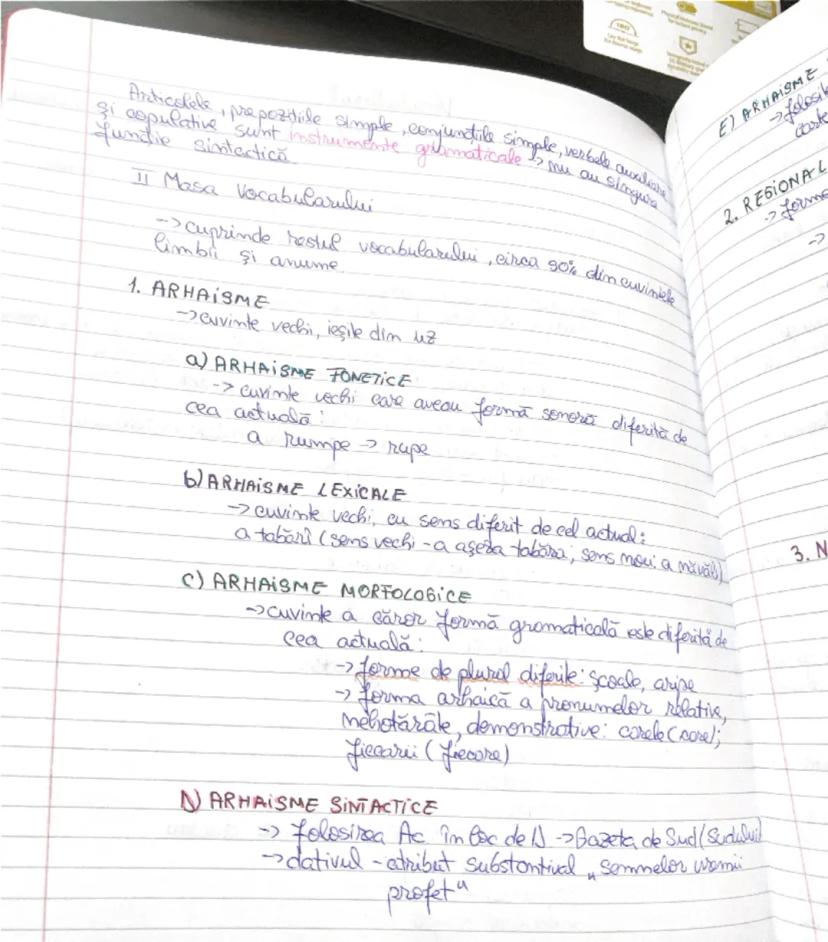 Articolele, prepozițiile simple, conjuncțiile simple, verbele auxiliare
și copulative sunt instrumente gramaticale -> nu au singure
funcție sintactică
II Masa vocabularului
-> cuprinde restul vocabularului, circa 90% din cuvintele
limbii și anume
1. ARHAISME
-> cuvinte vechi, ieșite din uz
a) ARHAISME FONETICE
-> cuvinte vechi care aveau formă sonoră diferită de
cea actuală:
a rumpe -> rupe
b) ARHAISME LEXICALE
-> cuvinte vechi, cu sens diferit de cel actual:
a tabărî (sens vechi - a așeza tabăra; sens nou: a năvăli)
c) ARHAISME MORFOLOGICE
-> cuvinte a căror formă gramaticală este diferită de
cea actuală:
-> forme de plural diferite: școale, aripe
-> forma arhaică a pronumelor relative,
nehotărâte, demonstrative: carele (care);
fiecarii (fiecare)
D) ARHAISME SINTACTICE
-> folosirea Ac în loc de D -> Gazeta de Sud (Sudului)
-> dativul - atribut substantival „semnelor vremii
profet"
E) ARHAISME
-> folosite
carte
2. REGIONAL
-> forme
->
3. N